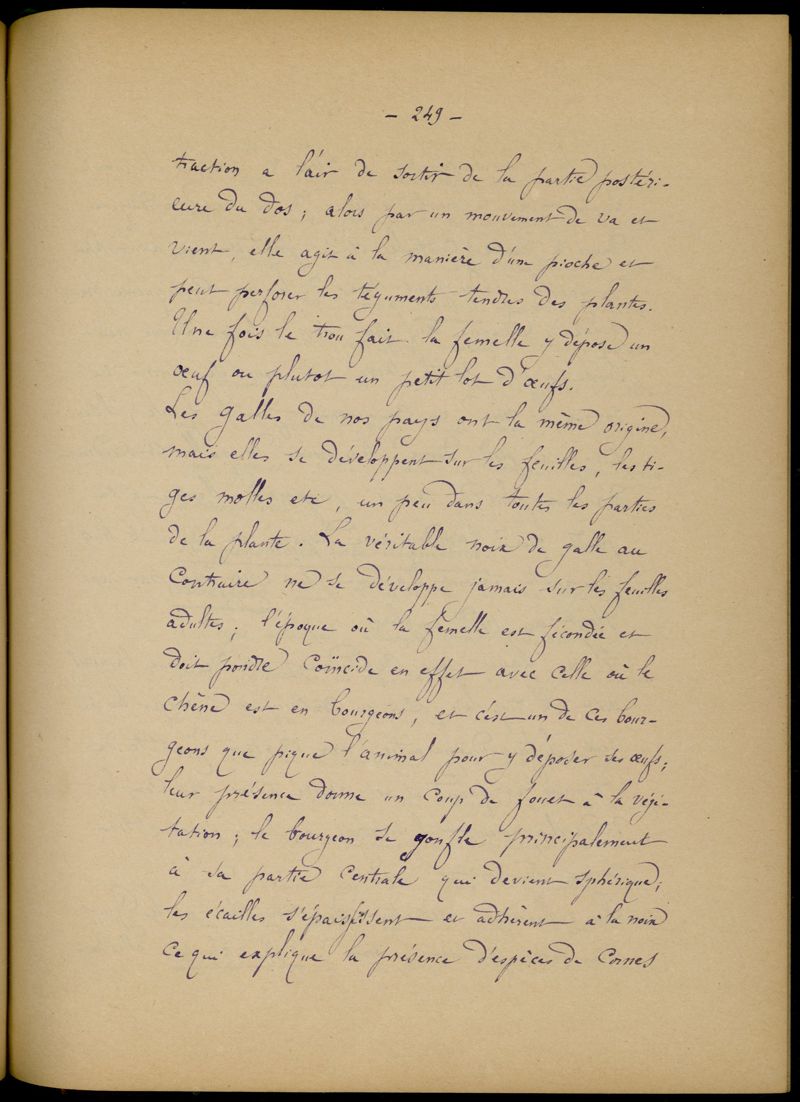 - 249 -
traction a l'air de sortir de la partie postéri-
eure du dos; alors par un mouvement de va et
vient, elle agit à la manière d'une pioche et
peut perforer les téguments tendres des plantes.
Une fois le trou fait la femelle y dépose un
œuf ou plutot un petit lot d'œufs.
Les Galles de nos pays ont la même origine,
mais elles se développent sur les feuilles, les ti-
ges molles etc, un peu dans toutes les parties
de la plante. La véritable noix de galle au
Contraire ne se développe jamais sur les feuilles
adultes; l'époque où la femelle est fécondée et
doit pondre coïncide en effet avec celle où le
Chêne est en bourgeons, et c'est un de ces bour-
geons que pique l'animal pour y déposer ses œufs;
leur présence donne un coup de fouet à la végé-
tation; le bourgeon se gonfle principalement
à sa partie centrale qui devient sphérique;
les écailles s'épaississent et adhèrent à la noix
ce qui explique la présence d'espèces de Cornes